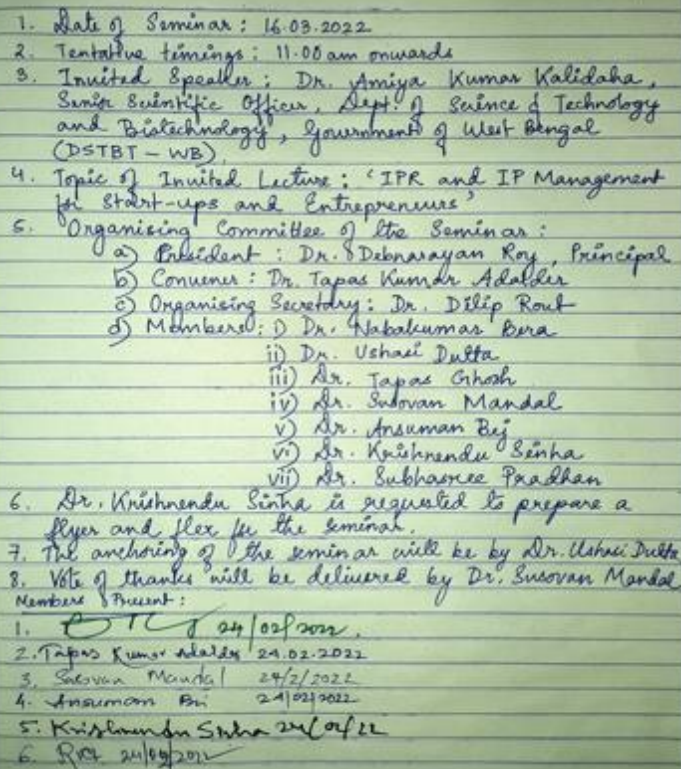 1. Date of Seminar : 16.03.2022
2. Tentative timings : 11.00 am onwards
3. Invited Speaker : Dr. Amiya Kumar Kalidaha,
Senior Scientific Officer, Dept. of Science & Technology
and Biotechnology, Government of West Bengal
(DSTBT - WB)
4. Topic of Invited Lecture : 'IPR and IP Management
for Start-ups and Entrepreneurs'
5. Organising Committee of the Seminar :
a) President : Dr. Debnarayan Roy, Principal
b) Convener : Dr. Tapas Kumar Adalder
c) Organising Secretary : Dr. Dilip Rout
d) Members : i) Dr. Nabakumar Bera
ii) Dr. Ushasi Dutta
iii) Dr. Tapas Ghosh
iv) Dr. Susovan Mandal
v) Dr. Ansuman Bej
vi) Dr. Krishnendu Sinha
vii) Dr. Subhasree Pradhan
6. Dr. Krishnendu Sinha is requested to prepare a
flyer and flex for the seminar.
7. The anchoring of the seminar will be by Dr. Ushasi Dutta
8. Vote of thanks will be delivered by Dr. Susovan Mandal
Members Present :
1. 24/02/2022.
2. Tapas Kumar Adalder 24.02.2022
3. Susovan Mandal 24/2/2022
4. Ansuman Bej 24/02/2022
5. Krishnendu Sinha 24/02/22
6. 24/02/2022